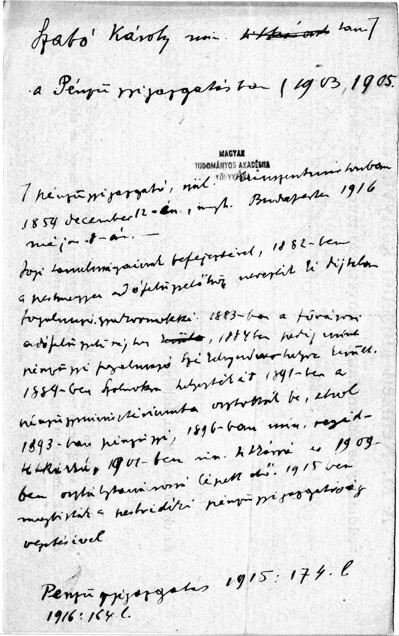 Szabó Károly min. titkári tan]
a Pénzügyigazgatásban (1903, 1905.
MAGYAR
TUDOMÁNYOS AKADÉMIA
KÖNYVTÁRA
] pénzügyigazgató, szül.
1854 december 12-én, mgh. Budapesten 1916
május 8-án. —
Jogi tanulmányainak befejeztével, 1882-ben
a pestmegyei adófelügyelőhöz nevezték ki díjtalan
fogalmazógyakornokká. 1883-ban a fővárosi
adófelügyelőséghez, 1884ben pedig mint
pénzügyi fogalmazó Székelyudvarhelyre került.
1889-ben Szolnokra helyezték át 1891-ben a
pénzügyminisztériumba osztották be, ahol
1893-ban pénzügyi, 1896-ban min. segéd-
titkárrá, 1901-ben min. titkárrá és 1909-
ben osztálytanácsossá lépett elő. 1915 ben
megbízták a pestvidéki pénzügyigazgatóság
vezetésével
Pénzügyigazgatás 1915: 174. l
1916: 164 l.